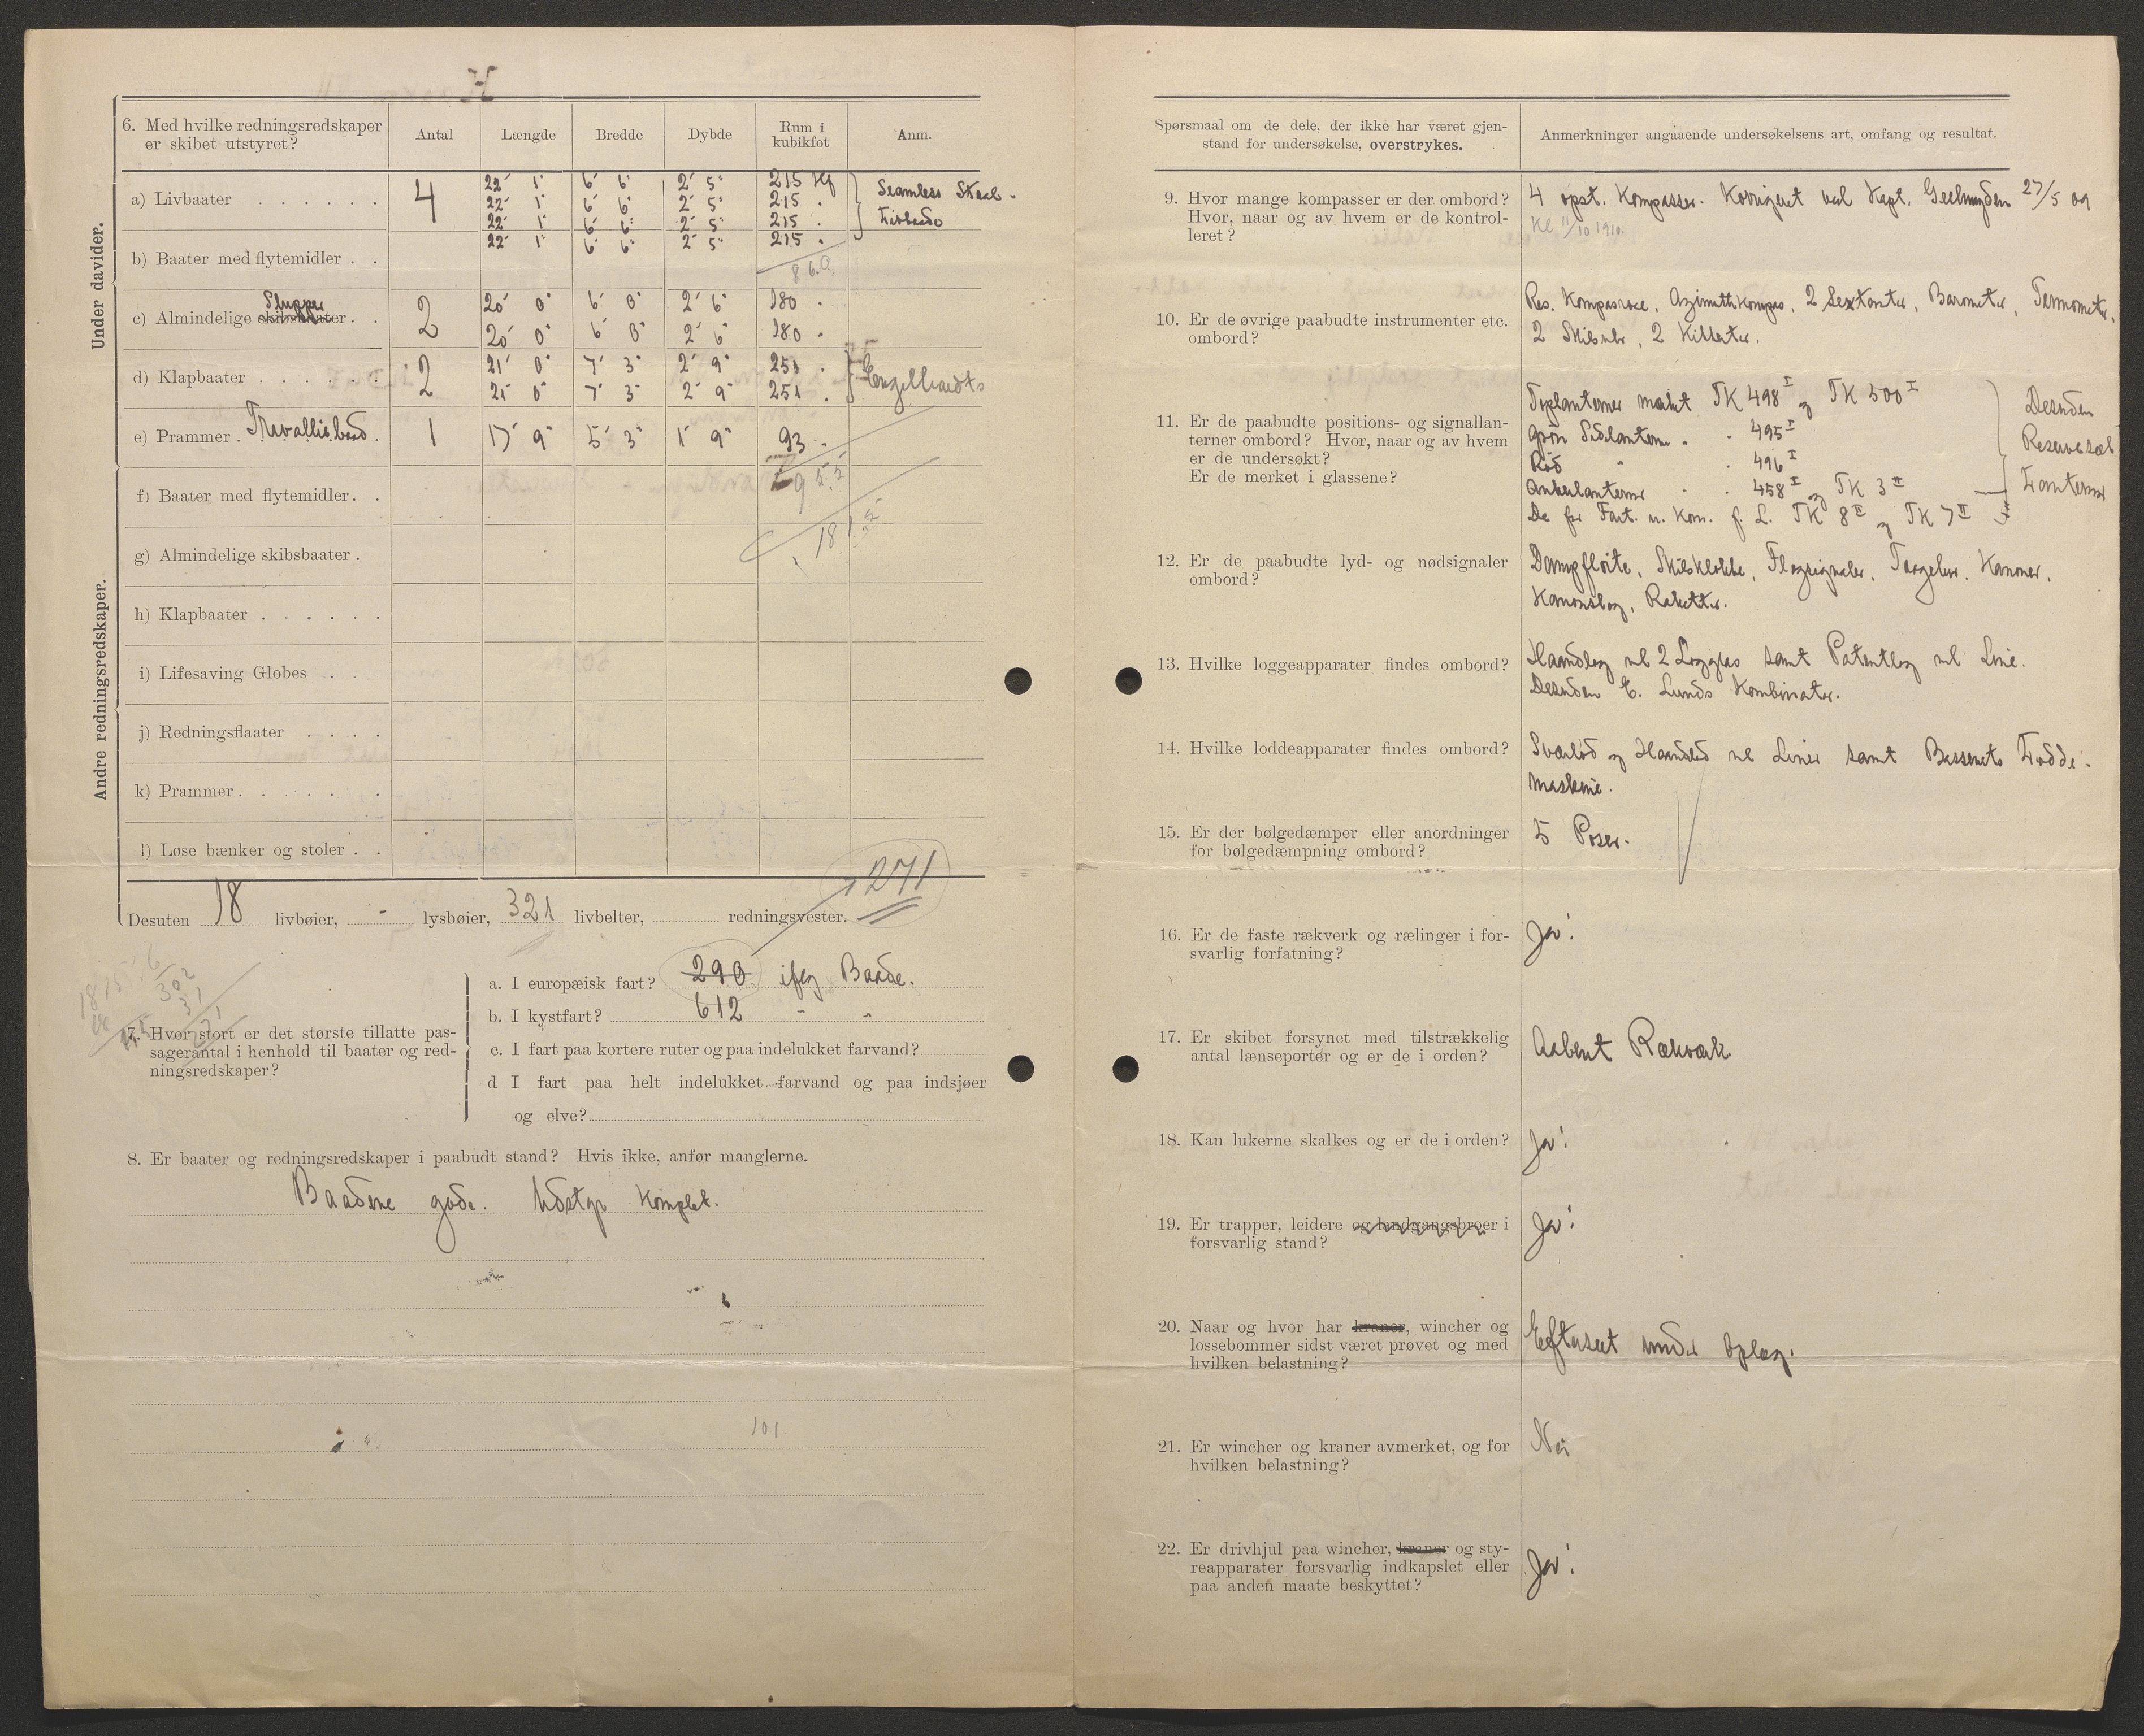 6. Med hvilke redningsredskaper er skibet utstyret?
Antal Længde Bredde Dybde Rum i kubikfot Anm.
Under davider.
a) Livbaater 4
22' 1" 6' 6" 2' 5" 215 Kf Seamless Staal-
22' 1" 6' 6" 2' 5" 215 "
22' 1" 6' 6" 2' 5" 215 "
22' 1" 6' 6" 2' 5" 215 "
b) Baater med flytemidler
860
c) Almindelige skibsbaater Slupper 2
20' 0" 6' 0" 2' 6" 180 "
20' 0" 6' 0" 2' 6" 180 "
d) Klapbaater 2
21' 0" 7' 3" 2' 9" 251 Engelhardts
21' 0" 7' 3" 2' 9" 251 "
e) Prammer 1 17' 9" 5' 3" 1' 9" 93 "
Andre redningsredskaper.
f) Baater med flytemidler
g) Almindelige skibsbaater
h) Klapbaater
i) Lifesaving Globes
j) Redningsflaater
k) Prammer
l) Løse bænker og stoler
271
Desuten 18 livbøier, - lysbøier, 321 livbelter, redningsvester.
7. Hvor stort er det største tillatte pas-
sagerantal i henhold til baater og red-
ningsredskaper?
a. I europæisk fart? 290 ifølg Baade.
b. I kystfart? 612 " "
c. I fart paa kortere ruter og paa indelukket farvand?
d I fart paa helt indelukket farvand og paa indsjøer
og elve?
8. Er baater og redningsredskaper i paabudt stand? Hvis ikke, anfør manglerne.
Baadene gode. Udstyr komplet.
101
Spørsmaal om de dele, der ikke har været gjen-
stand for undersøkelse, overstrykes.
Anmerkninger angaaende undersøkelsens art, omfang og resultat.
9. Hvor mange kompasser er der ombord?
Hvor, naar og av hvem er de kontrol-
leret?
4 opst. Kompasser. Korrigeret ved Kapt. Geelmuyden 27/5 09
11/10 1910.
10. Er de øvrige paabudte instrumenter etc.
ombord?
Res. Kompasrose, Azimuthkompas, 2 Sextanter, Barometer, Termometer,
2 Skibsur, 2 Kikkerter.
11. Er de paabudte positions- og signallan-
terner ombord? Hvor, naar og av hvem
er de undersøkt?
Er de merket i glassene?
Toplanterner mærket TK 498 I og TK 500 I
Grøn Sidelanterne " " 495 I
Rød " " 496 I
Ankerlanterner " " 458 I og TK 3 II
De for Fart. u. Kom. f. L. TK 8 II og TK 7 II
Desuden
Reservesæt
Lanterner
12. Er de paabudte lyd- og nødsignaler
ombord?
Dampfløite, Skibsklokke, Flagsignaler, Taagelur, Kanoner,
Kanonslag, Raketter.
13. Hvilke loggeapparater findes ombord?
Haandlog m 2 Logglas samt Patentlog m Line.
Desuden E. Lunds Kombinator.
14. Hvilke loddeapparater findes ombord?
Sværlod og Haandlod m Liner samt Bassenets Lodde-
maskine.
15. Er der bølgedæmper eller anordninger
for bølgedæmpning ombord?
5 Poser.
16. Er de faste rækverk og rælinger i for-
svarlig forfatning?
Ja!
17. Er skibet forsynet med tilstrækkelig
antal lænseporter og er de i orden?
Aabent Rækværk
18. Kan lukerne skalkes og er de i orden?
Ja!
19. Er trapper, leidere og landgangsbroer i
forsvarlig stand?
Ja!
20. Naar og hvor har kraner, wincher og
lossebommer sidst været prøvet og med
hvilken belastning?
Efterseet under Oplag.
21. Er wincher og kraner avmerket, og for
hvilken belastning?
Nei
22. Er drivhjul paa wincher, kraner og sty-
reapparater forsvarlig indkapslet eller
paa anden maate beskyttet?
Ja!